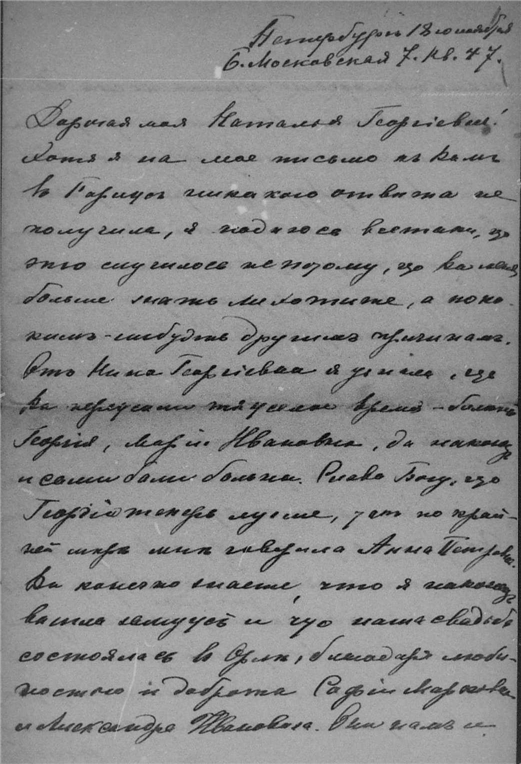 Петербургъ 18 октября
Б. Московская 7. кв. 47.
Дорогая моя Наталья Георгіевна!
Хотя я на мое письмо къ Вамъ
в Горицы никакого отвѣта не
получила, я надѣюсь всетаки, что
это случилось не потому, что Вы меня
больше знать не хотите, а по ка-
кимъ-нибудь другимъ причинамъ.
Отъ Нины Георгіевны я узнала, что
Вы пережили тяжелое время - болѣзнь
Георгія, Маріи Ивановны, да наконецъ
и сами были больны. Слава Богу, что
Георгій теперь лучше, такъ по край-
ней мѣрѣ мнѣ говорила Анна Петровна.
Вы конечно знаете, что я наконецъ
вышла замужъ и что наша свадьба
состоялась в Орлѣ, благодаря любез-
ностью и доброта Софіи Марковны
и Александра Ивановича. Они намъ и